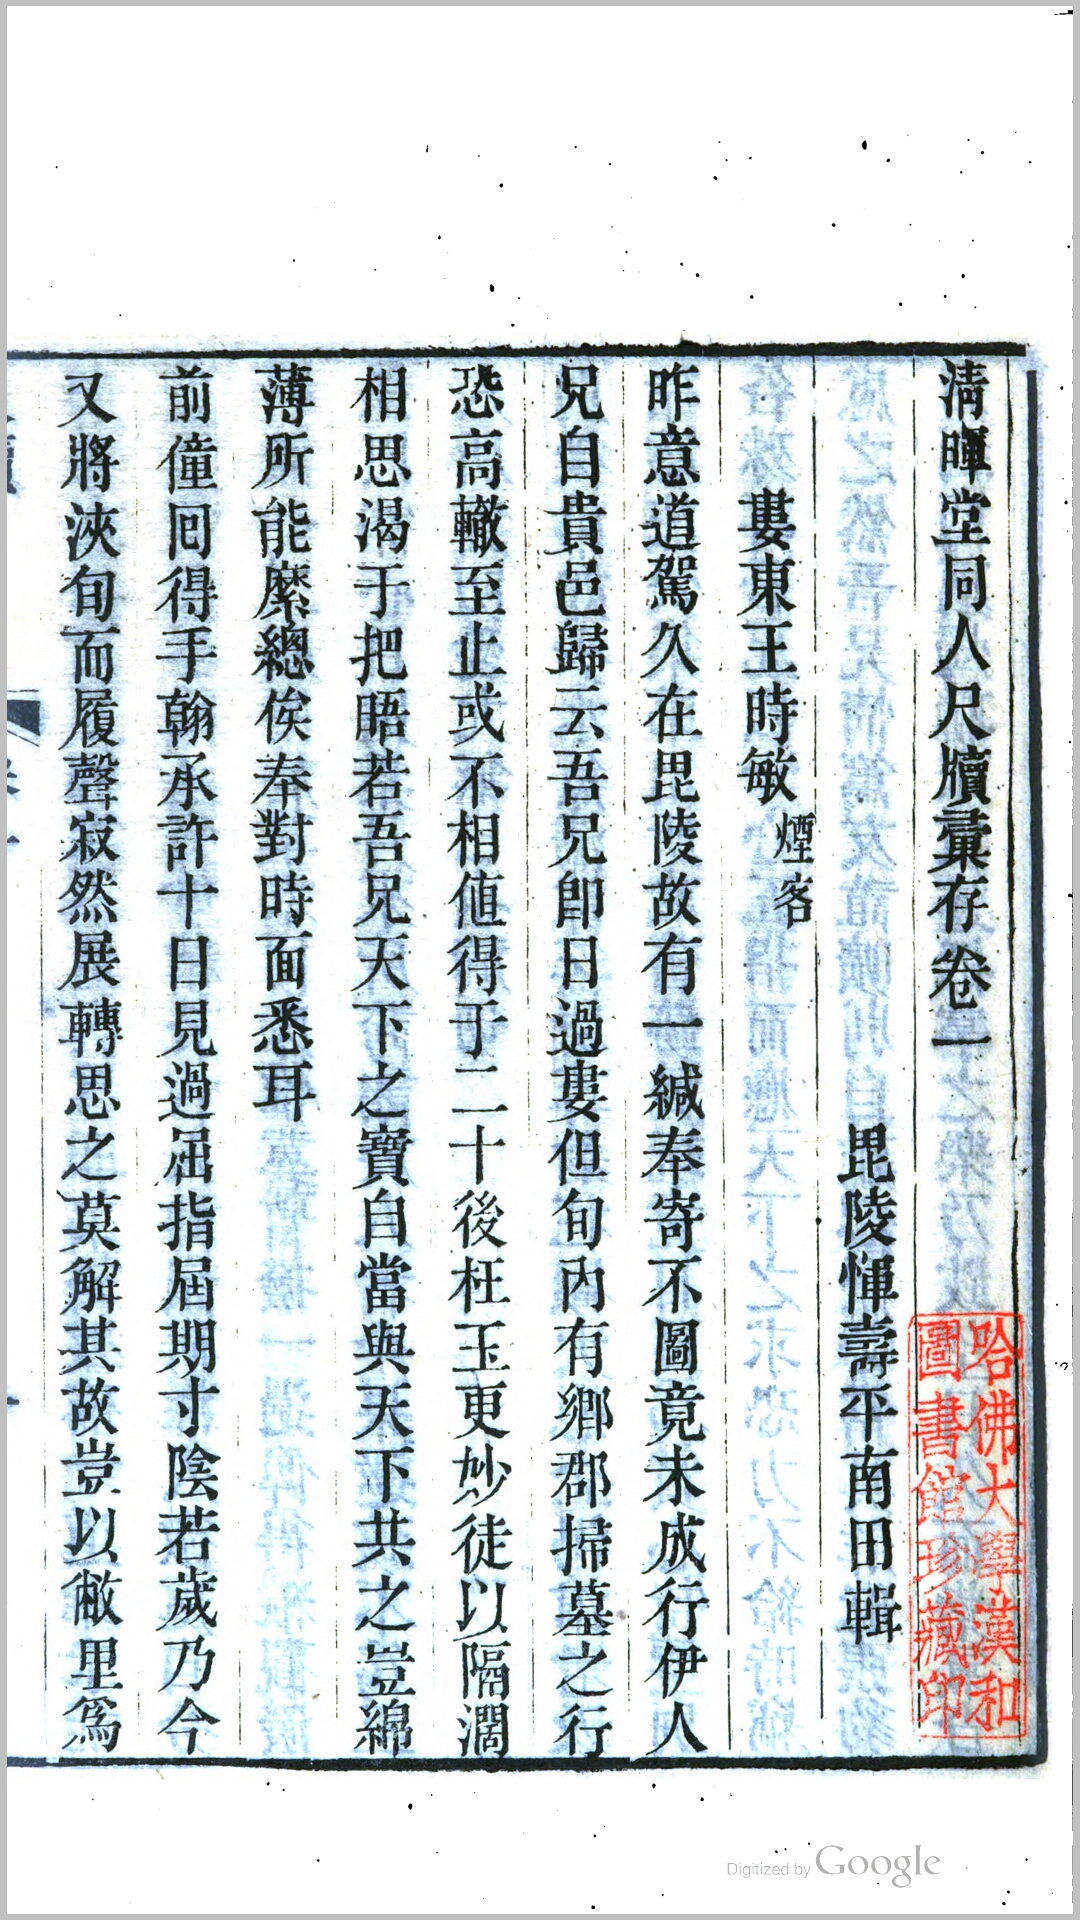 清暉堂同人尺牘彙存卷一
毘陵惲壽平南田輯
婁東王時敏煙客
昨意道駕久在毘陵故有一緘奉寄不圖竟未成行伊人
兄自貴邑歸云吾兄卽日過婁但旬內有鄉郡掃墓之行
恐高轍至止或不相値得于二十後枉玉更妙徒以隔濶
相思渴于把晤若吾兄天下之寶自當與天下共之豈綿
薄所能縻總俟奉對時面悉耳
前僮囘得手翰承許十日見過屈指屆期寸陰若歲乃今
又將浹旬而履聲寂然展轉思之莫解其故豈以敝里爲
哈佛大學漢和
圖書館珍藏印
Digitized by Google